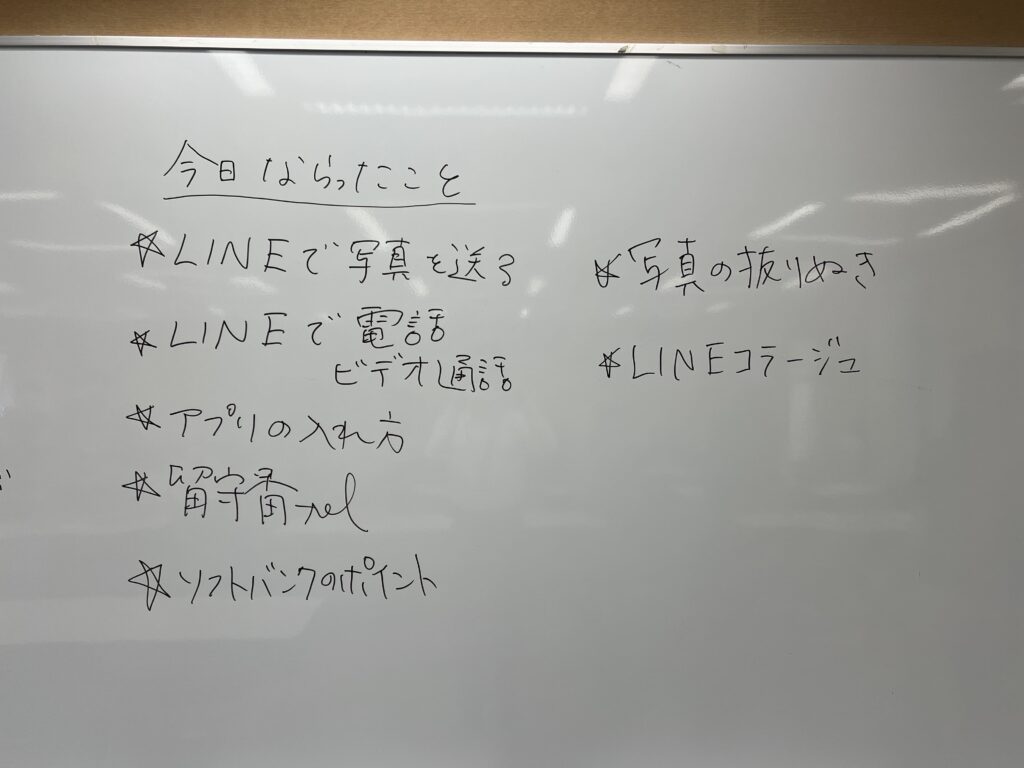 今日ならったこと
☆LINEで写真を送る
☆LINEで電話
ビデオ通話
☆アプリの入れ方
☆留守番tel
☆ソフトバンクのポイント
☆写真の抜りぬき
☆LINEコラージュ